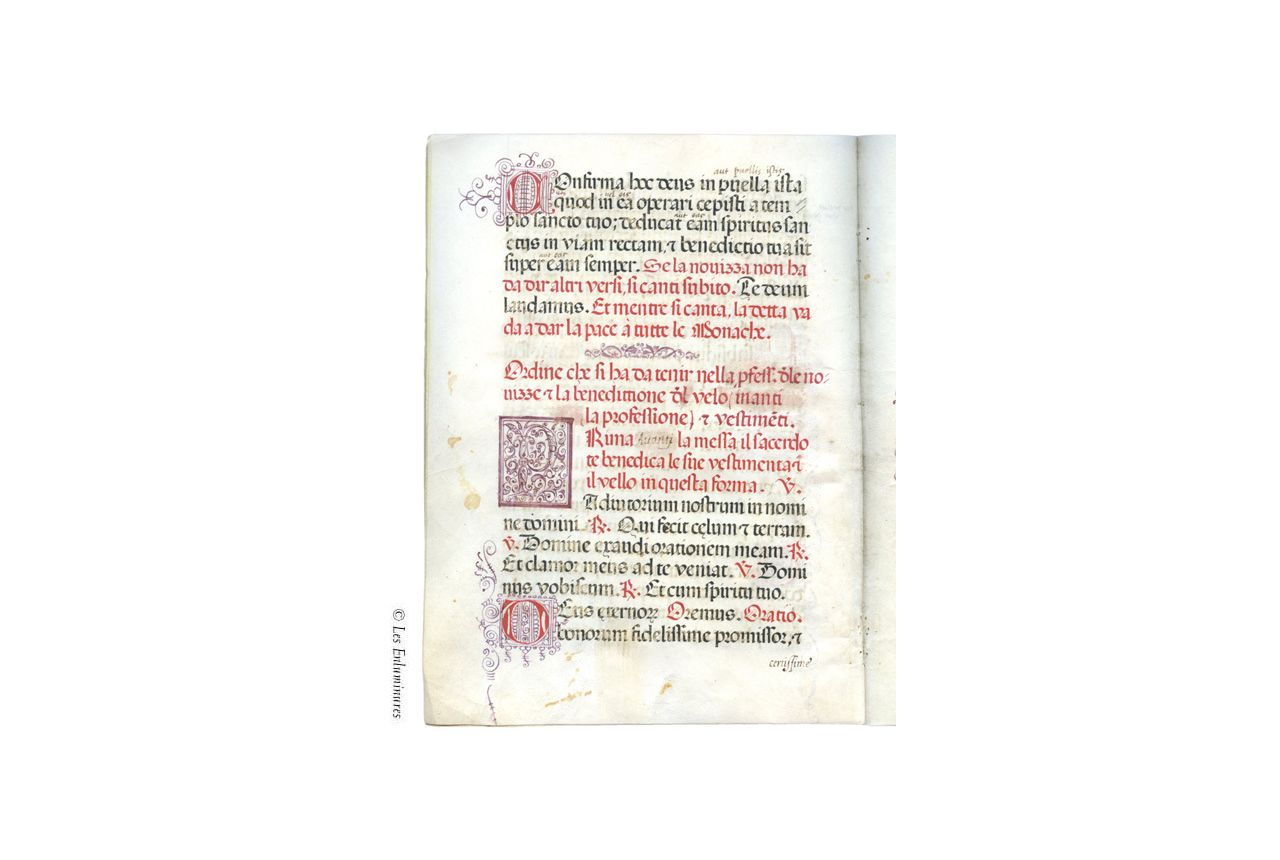 aut puellis istis
COnfirma hoc deus in puella ista
vel eis
quod in ea operari cepisti a tem
aut eas
plo sancto tuo; deducat eam spiritus san
ctus in viam rectam, ⁊ benedictio tua sit
aut eas
super eam semper. Se la nouizza non ha
da dir altri versi, si canti subito. Te deum
laudamus. Et mentre si canta, la detta va
da a dar la pace à tutte le Monache.
Ordine che si ha da tenir nella ꝓfess. d̄le no-
uizze ⁊ la benedittione d̄l velo (inanti
la professione) ⁊ vestimēti.
PRima la messa il sacerdo
te benedica le sue vestimenta ⁊
il vello in questa forma. ℣.
Adiutorium nostrum in nomi
ne domini. ℟. Qui fecit cęlum ⁊ terram.
℣. Domine exaudi orationem meam. ℟.
Et clamor meus ad te veniat. ℣. Domi
nus vobiscum. ℟. Et cum spiritu tuo.
DEus ęternoꝝ Oremus. Oratio.
bonorum fidelissime promissor, ⁊
certissime
© Les Enluminures